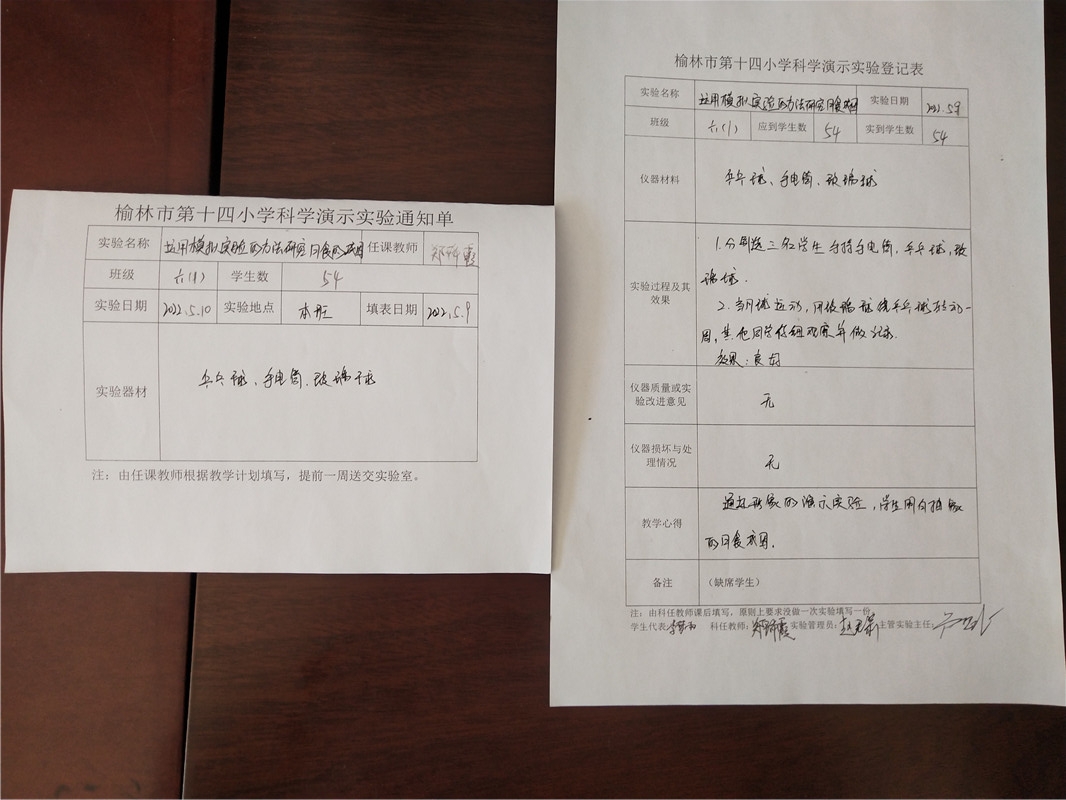 榆林市第十四小学科学演示实验通知单
实验名称 运用模拟实验的方法研究日食的成因 任课教师 郑妍霞
班级 六(1) 学生数 54
实验日期 2022.5.10 实验地点 本班 填表日期 2022.5.9
实验器材 乒乓球、手电筒、玻璃球
注：由任课教师根据教学计划填写，提前一周送交实验室。
榆林市第十四小学科学演示实验登记表
实验名称 运用模拟实验的方法研究日食成因 实验日期 2022.5.9
班级 六(1) 应到学生数 54 实到学生数 54
仪器材料 乒乓球、手电筒、玻璃球
实验过程及其效果
1.分别选三名学生手持手电筒，乒乓球，玻
璃球.
2.当月球运动，用玻璃球绕乒乓球转动一
周，其他同学仔细观察并做记录.
效果：良好
仪器质量或实验改进意见 无
仪器损坏与处理情况 无
教学心得
的演示实验，学生
的日食成因.
备注 （缺席学生）
注：由科任教师课后填写，原则上要求没做一次实验填写一份
学生代表： 科任教师：郑妍霞 实验管理员： 主管实验主任：